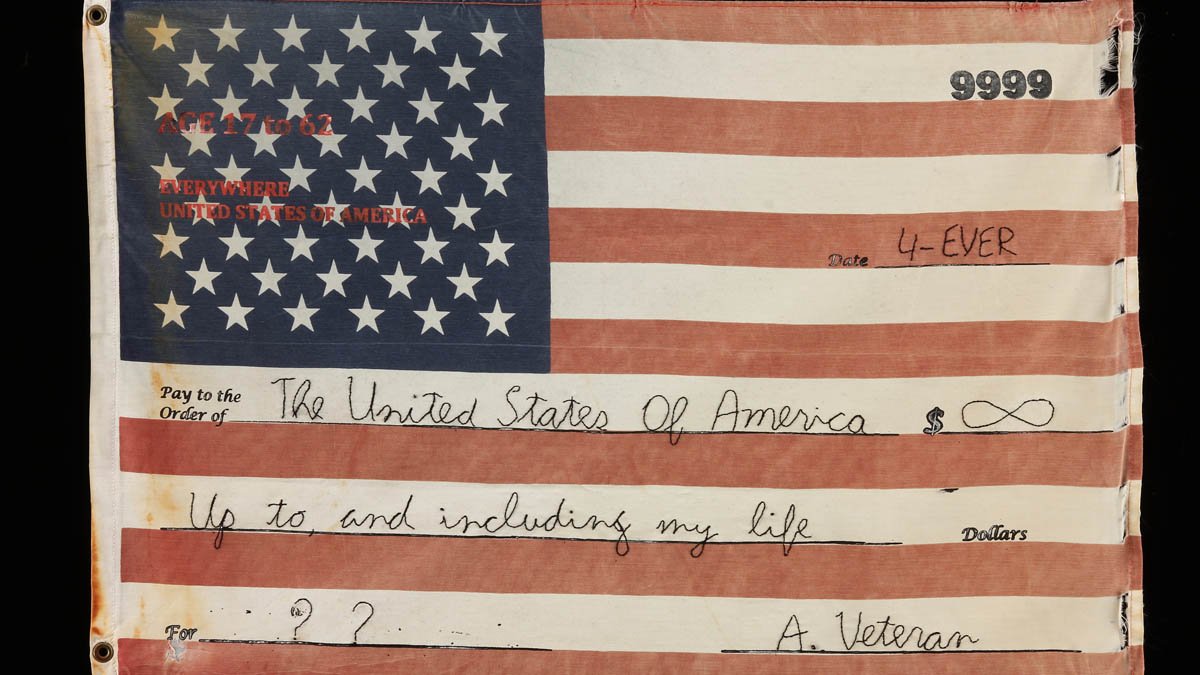 9999
AGE 17 to 62
EVERYWHERE
UNITED STATES OF AMERICA
Date 4-EVER
Pay to the
Order of The United States Of America $ ∞
Up to, and including my life Dollars
For ? ? A. Veteran